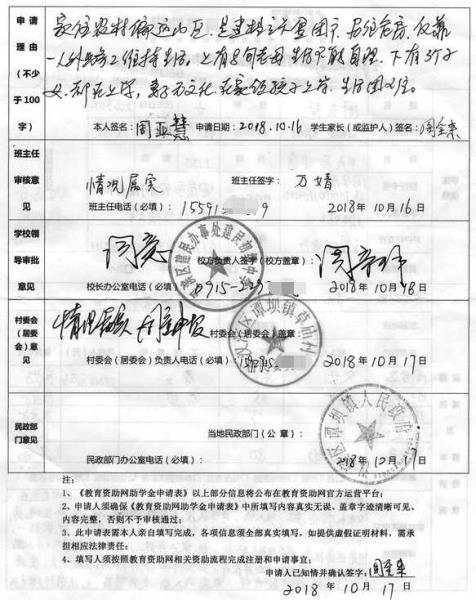 申请理由（不少于100字）
家住农村偏远山区，是建档立卡贫困户，居住危房，仅靠
一人外出务工维持生活。上有8旬老母生活不能自理，下有3个子
女，都在上学，妻子无文化，在家供孩子上学，生活困难。
本人签名：周亚慧 申请日期：2018.10.16 学生家长（或监护人）签名：周全来
班主任审核意见
情况属实 班主任签字：万婧
班主任电话（必填）：1559 9 2018年10月16
学校领导审批意见
校方负责人签字（校方盖章）：
校长办公室电话（必填）：0915-2 2018年10月18日
村委会（居委会）意见
情况属实 村委会（居委会）盖章：
村委会（居委会）负责人电话（必填）： 2018年10月17日
民政部门意见
当地民政部门（公章）：
民政部门办公室电话（必填）： 2018年12月17日
注：
1、《教育资助网助学金申请表》以上部分信息将公布在教育资助网官方运营平台；
2、申请人须确保《教育资助网助学金申请表》中所填写内容真实无误、盖章字迹清晰可见、
内容完整，否则不予审核通过；
3、此申请表需本人亲自填写完成，各项信息须全部真实填写，如提供虚假证明材料，需承
担相应法律责任；
4、填写人须按照教育资助网相关资助流程完成注册和申请事宜；
申请人已知情并确认签字：周全来
2018年10月17日